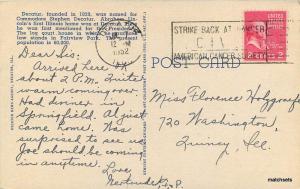 Decatur, founded in 1829, was named for
Commodore Stephen Decatur. Abraham Lin-
coln's first Illinois home was at Decatur. Here
he was first mentioned for the Presidency.
The log court house in which
low stands in Fairview Park. The present
population is 80,000.
12
1952
STRIKE BACK AT CANCER
AMERICAN CANCER
POST CARD
Dear Sis.
Arrived here at
about 2 P.M. Quite
warm coming over.
Had dinner in
Springfield. Al just
came home. Was
surprised to see us.
Joe should be coming
in anytime.
Love
Miss Florence
720 Washington,
Quincy, Ill.
matchsets